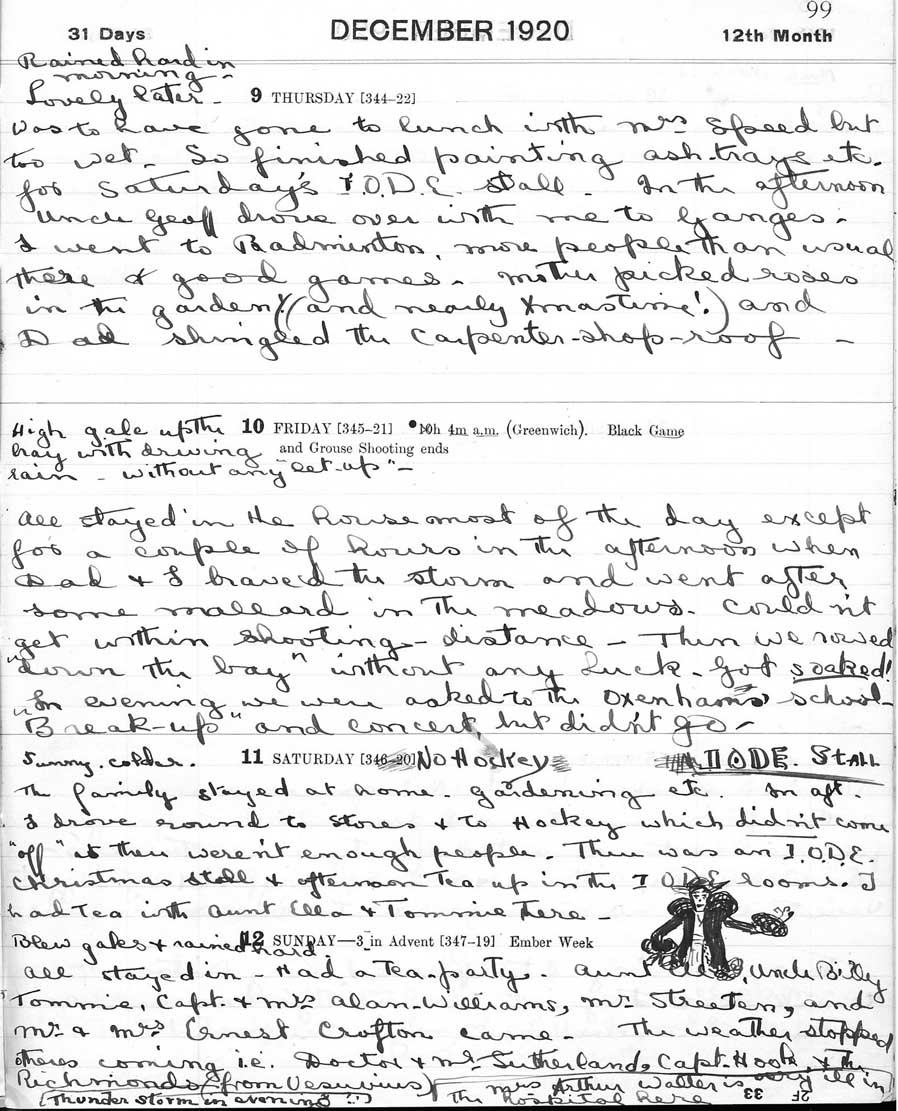 99
31 Days DECEMBER 1920 12th Month
Rained hard in
morning -
Lovely later - 9 THURSDAY [344–22]
Was to have gone to lunch with Mrs Speed but
too wet - So finished painting ash-trays etc.
for Saturday's I.O.D.E. stall - In the afternoon
Uncle Geoff drove over with me to Ganges -
I went to Badminton, more people than usual
there & good games - Mother picked roses
in the garden! (and nearly Xmastime!) and
Dad shingled the Carpenter-shop-roof -
High gale up the 10 FRIDAY [345–21] 10h 4m a.m. (Greenwich). Black Game
bay with driving and Grouse Shooting ends
rain - without any "let-up" -
All stayed in the house most of the day except
for a couple of hours in the afternoon when
Dad & I braved the storm and went after
some mallard in the meadows. Couldn't
get within shooting-distance - Then we rowed
"down the bay" without any luck - Got soaked!
In evening we were asked to the Oxenhams school-
"Break-up" and concert, but didn't go -
Sunny. colder. 11 SATURDAY [346–20] No Hockey IODE. STALL
The family stayed at home gardening etc. In aft.
I drove round to Stores & to Hockey which didn't come
"off" as there weren't enough people. There was an I.O.D.E.
Christmas Stall & afternoon Tea up in the I O D E rooms. I
had Tea with Aunt Ella & Tommie there -
Blew gales & rained hard. 12 SUNDAY—3 in Advent [347–19] Ember Week
All stayed in - Had a Tea-party. Aunt Ella, Uncle Billy
Tommie, Capt. & Mrs Alan-Williams, Mr Streeten, and
Mr & Mrs Ernest Crofton came - The weather stopped
others coming i.e. Doctor & Mrs Sutherland, Capt. Hook, & the
Richmonds (from Vesuvius) Mrs Arthur Walter is very ill in
(Thunder storm in evening!!) The hospital here 33 2F